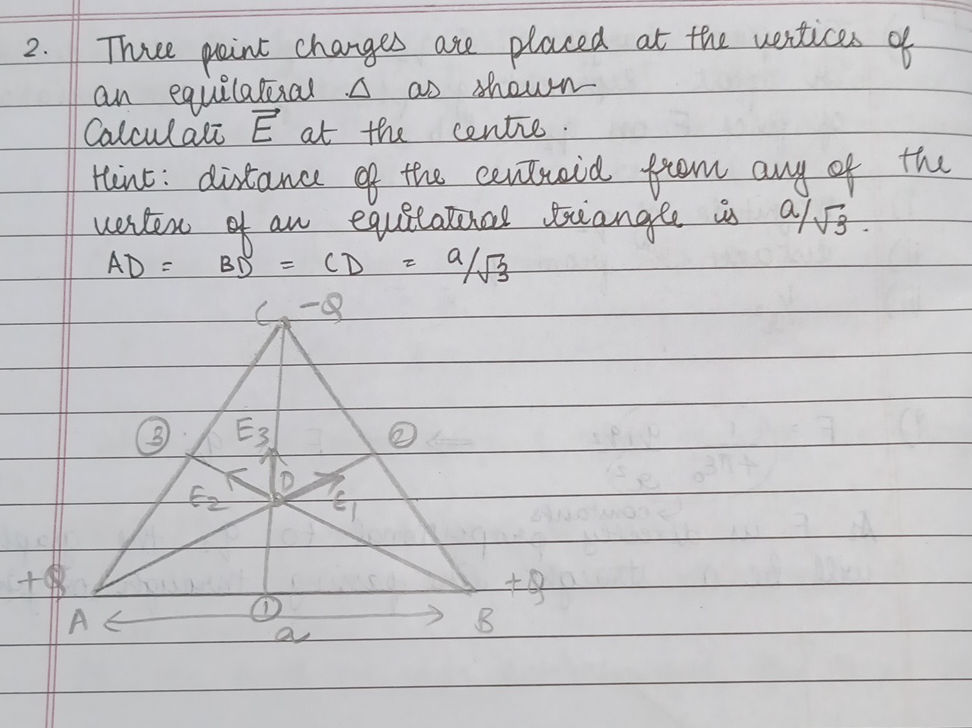 2. Three point charges are placed at the vertices of
an equilateral Δ as shown
Calculate E⃗ at the centre.
Hint: distance of the centroid from any of the
vertex of an equilateral triangle is a/√3.
AD = BD = CD = a/√3
C -Q
③ E3 ②
E2 D E1
+Q +Q
A ① B
a